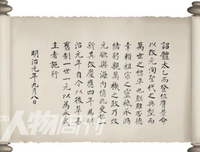 詔體太乙而登位膺景命
以改元洵聖代之典型而
萬世之標準也朕雖否德
幸賴祖宗之靈祗承鴻
緒躬親萬機之政乃改
元欲與海內億兆更始一
新其改慶應四年爲明
治元年自今以後革易
舊制一世一元以爲永式
主者施行
明治元年九月八日
人物